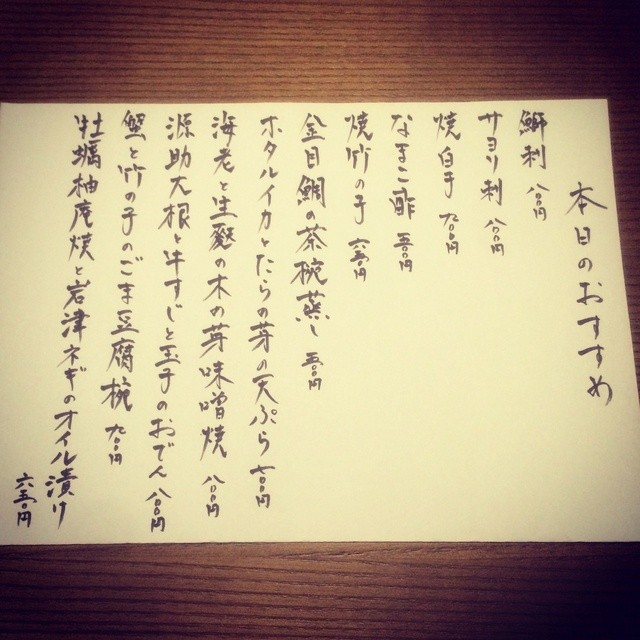 本日のおすすめ
鰤刺 八〇〇円
サヨリ刺 八〇〇円
焼白子 九〇〇円
なまこ酢 五〇〇円
焼竹の子 六五〇円
金目鯛の茶椀蒸し 五〇〇円
ホタルイカとたらの芽の天ぷら 七〇〇円
海老と生麩の木の芽味噌焼 八〇〇円
源助大根と牛すじと玉子のおでん 八〇〇円
蟹と竹の子のごま豆腐椀 九〇〇円
牡蠣柚庵焼と岩津ネギのオイル漬け
六五〇円